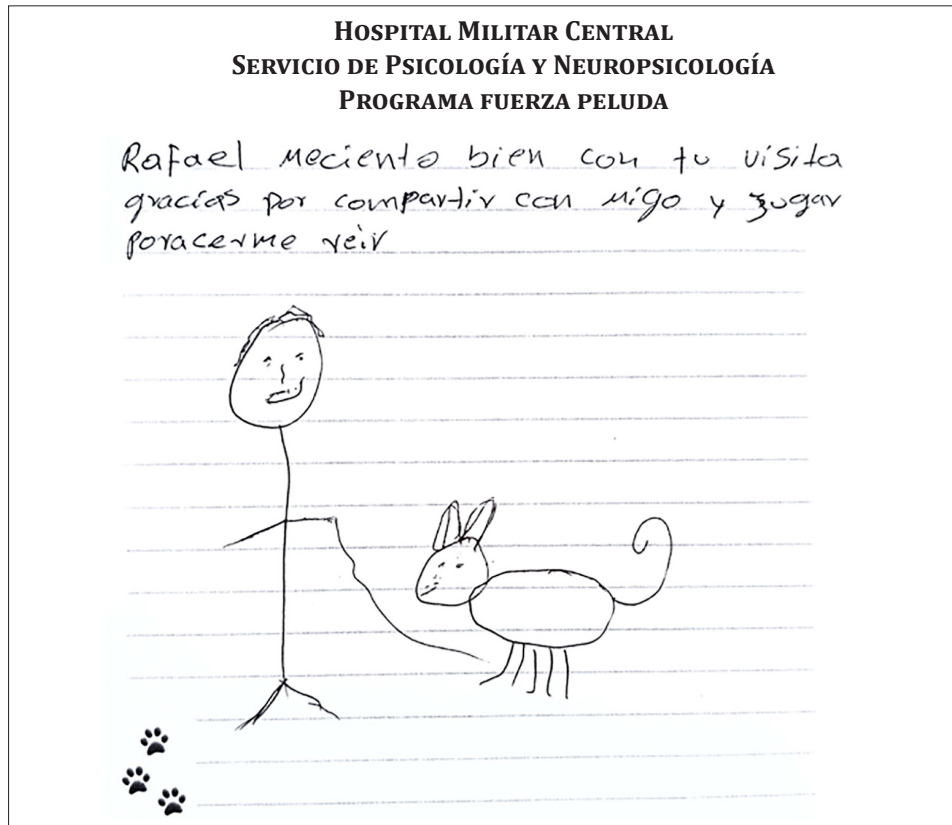 HOSPITAL MILITAR CENTRAL
SERVICIO DE PSICOLOGÍA Y NEUROPSICOLOGÍA
PROGRAMA FUERZA PELUDA
Rafael meciento bien con tu visita
gracias por compartir con migo y jugar
poracerme reir